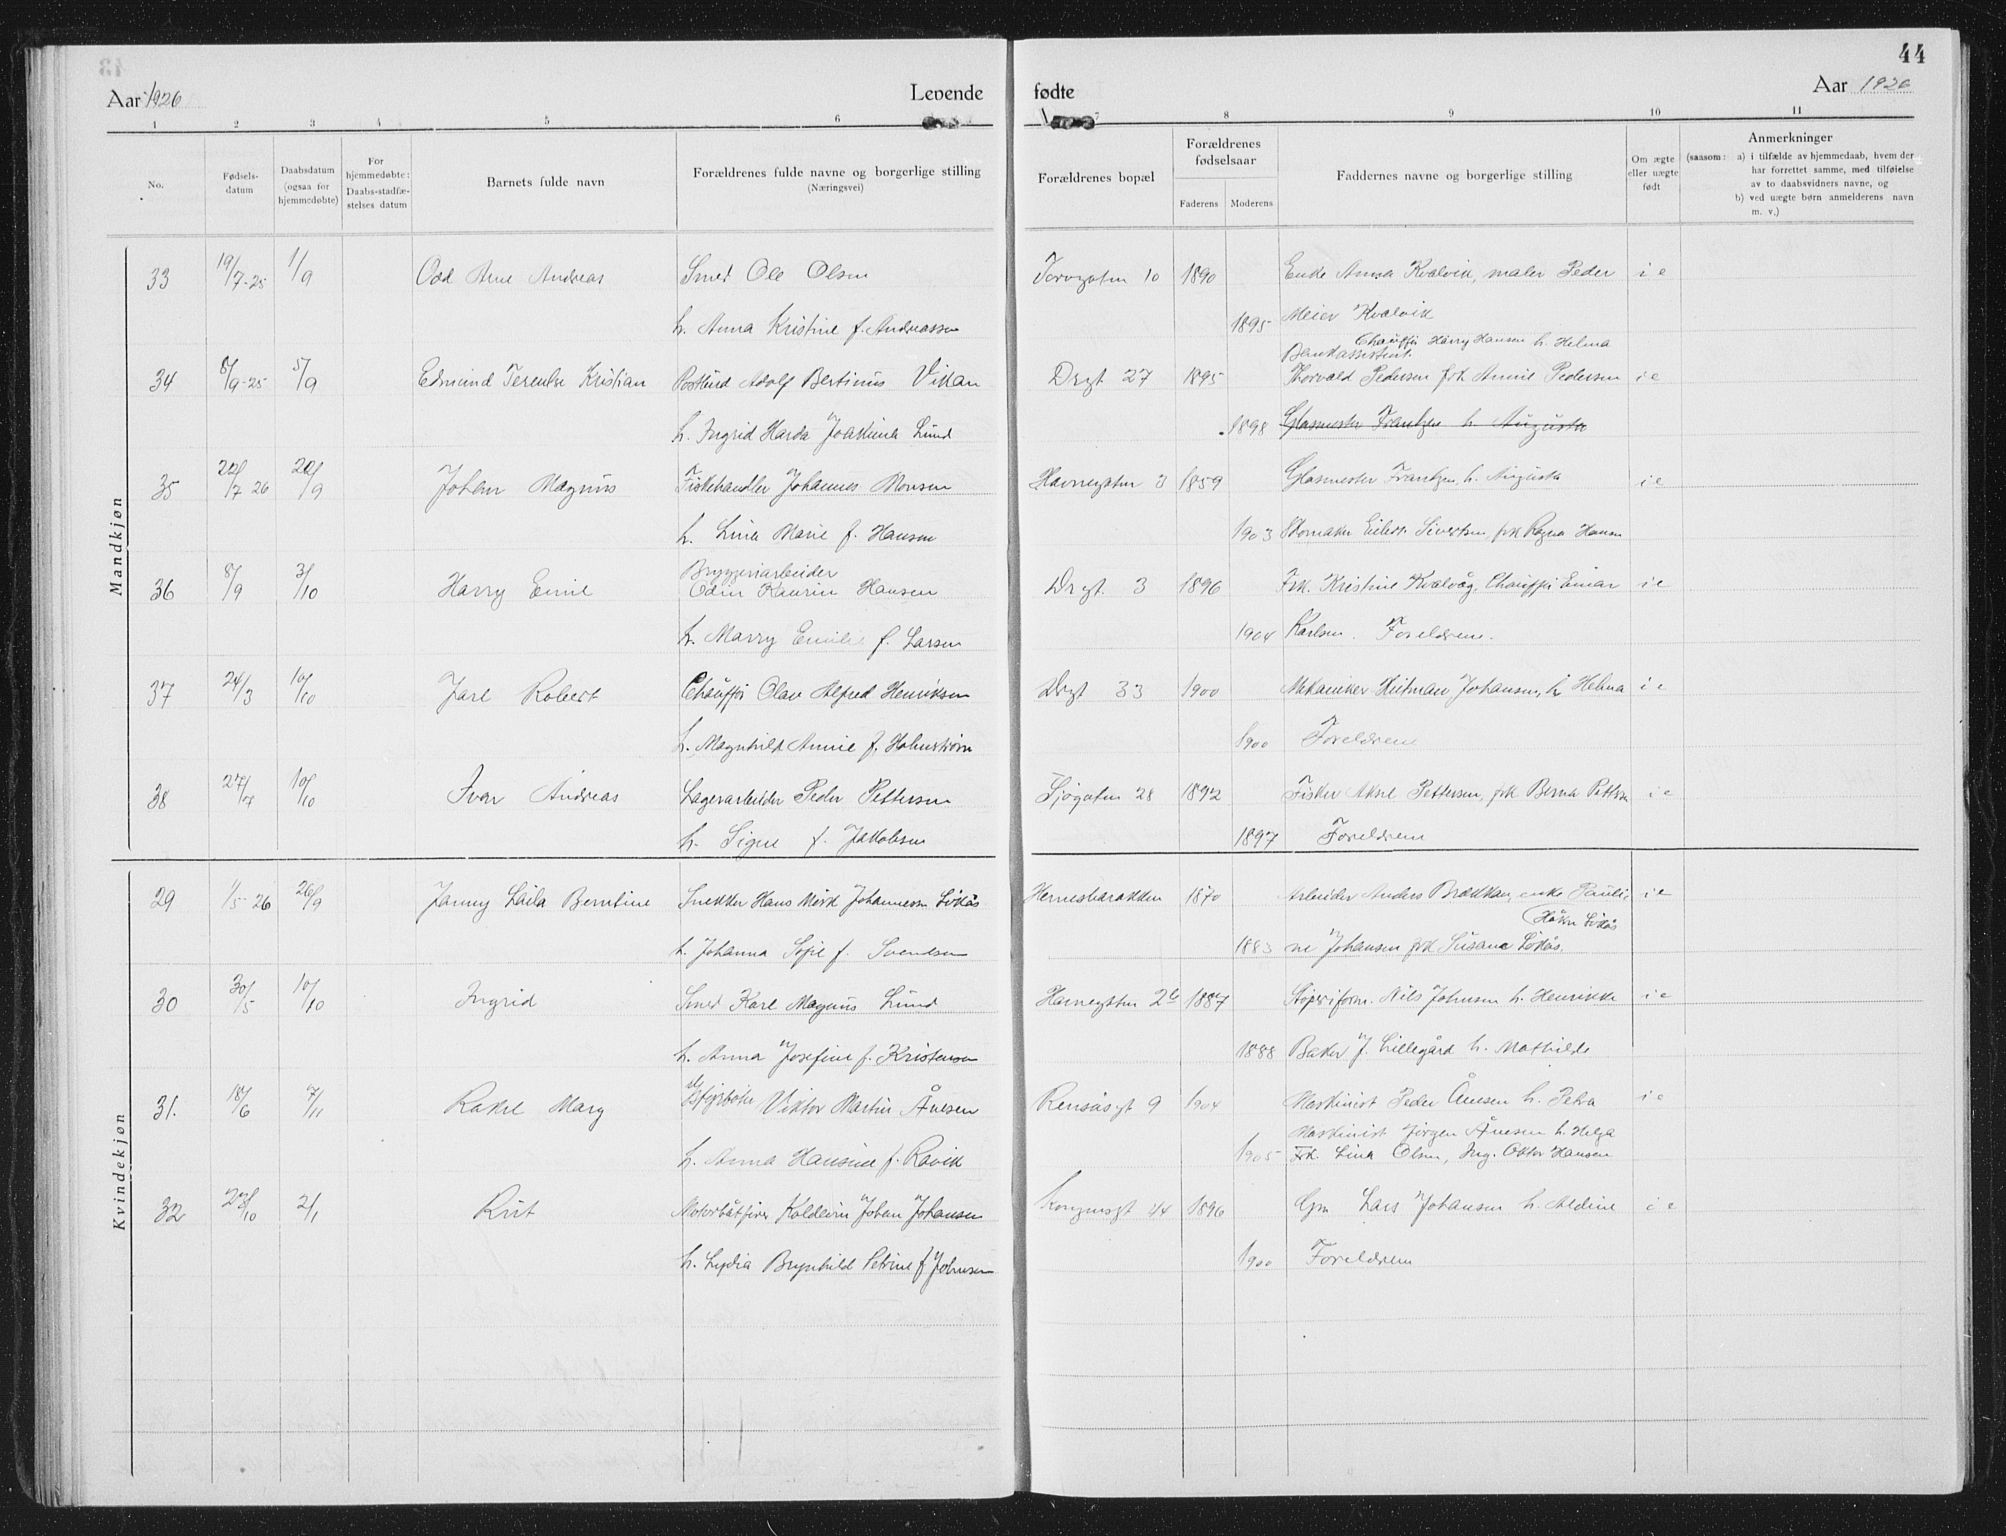 44
Aar 1926 Levende fødte Aar 1926
1 2 3 4 5 6 7 8 9 10 11
No. Fødsels-datum Daabsdatum (ogsaa for hjemmedøbte) For hjemmedøbte: Daabs-stadfæ-stelses datum Barnets fulde navn Forældrenes fulde navne og borgerlige stilling (Næringsvei) Forældrenes bopæl Forældrenes fødselsaar Faderens Moderens Faddernes navne og borgerlige stilling Om ægte eller uægte født Anmerkninger (saasom: a) i tilfælde av hjemmedaab, hvem der har forrettet samme, med tilføielse av to daabsvidners navne, og b) ved uægte børn anmelderens navn m. v.)
Mandkjøn
33 19/7-25 1/9 Odd Arne Andreas Smed Ole Olsen Torvgaten 10 1890 Enke Anna Kvalvik, maler Peder i e
h. Anna Kristine f. Andreassen 1895 Meier Kvalvik
Chauffør Harry Hansen h. Helma
Bankassistent
34 8/9-25 5/9 Edmund Terentse Kristian Postbud Adolf Bertinus Vikan Drgt 27 1895 Thorvald Pedersen frk Annie Pedersen i e
h. Ingrid Harda Joakima Lund 1898 Glasmester Frantzen h. Augusta
35 22/7 26 20/9 Johan Magnus Fiskehandler Johannes Monsen Havnegaten 3 1859 Glasmester Frantzen, h. Augusta i e
h. Lina Marie f. Hansen 1903 Skomaker Eilert Sivertsen, frk Ragna Hansen
Bryggeriarbeider
36 8/9 3/10 Harry Emil Odin Kaurin Hansen Drgt. 3 1896 Frk. Kristine Kvalvåg, Chauffør Einar i e
h. Marry Emilie f. Larsen 1904 Karlsen. Foreldrene.
37 24/3 10/10 Jarl Robert Chauffør Olav Alfred Henriksen Drgt 33 1900 Mekaniker Hilmar Johansen, h Helma i e
h. Magnhild Annie f. Holmstrøm 1900 Foreldrene
38 27/7 10/10 Ivar Andreas Lagerarbeider Peder Pettersen Sjøgaten 28 1892 Fisker Aksel Pettersen, frk Berna Pettersen i e
h. Signe f. Jakobsen 1897 Foreldrene
Kvindekjøn
29 1/5 26 26/9 Janny Laila Berntine Snekker Hans Mørk Johannesen Lidås Hernesbarakken 1870 Arbeider Anders Brækkan, enke Pauli- i e
Håkon Lidås
h. Johanna Sofie f. Svendsen 1883 ne Johansen frk Susana Lidås.
30 30/5 10/10 Ingrid Smed Karl Magnus Lund Havnegaten 2b 1887 Støperiform. Nils Johnsen h. Henrikke i e
h. Anna Josefine f. Kristensen 1888 Baker J. Lillegård h. Mathilde
31. 18/6 7/11 Rakel Mary Viktor Martin Ånesen Rensåsgt 9 1904 Maskinist Peder Ånesen h. Petra i e
Maskinist Jørgen Ånesen h. Helga
h. Anna Hansine f. Ravik 1905 Frk. Lina Olsen, Ing. Oktor Hansen
32 23/10 2/1 Rut Motorbåtfører Koldevin Johan Johansen Kongensgt 44 1896 Gm Lars Johansen h. Aldine i e
h. Lydia Brynhild Petrine f Johnsen 1900 Foreldrene